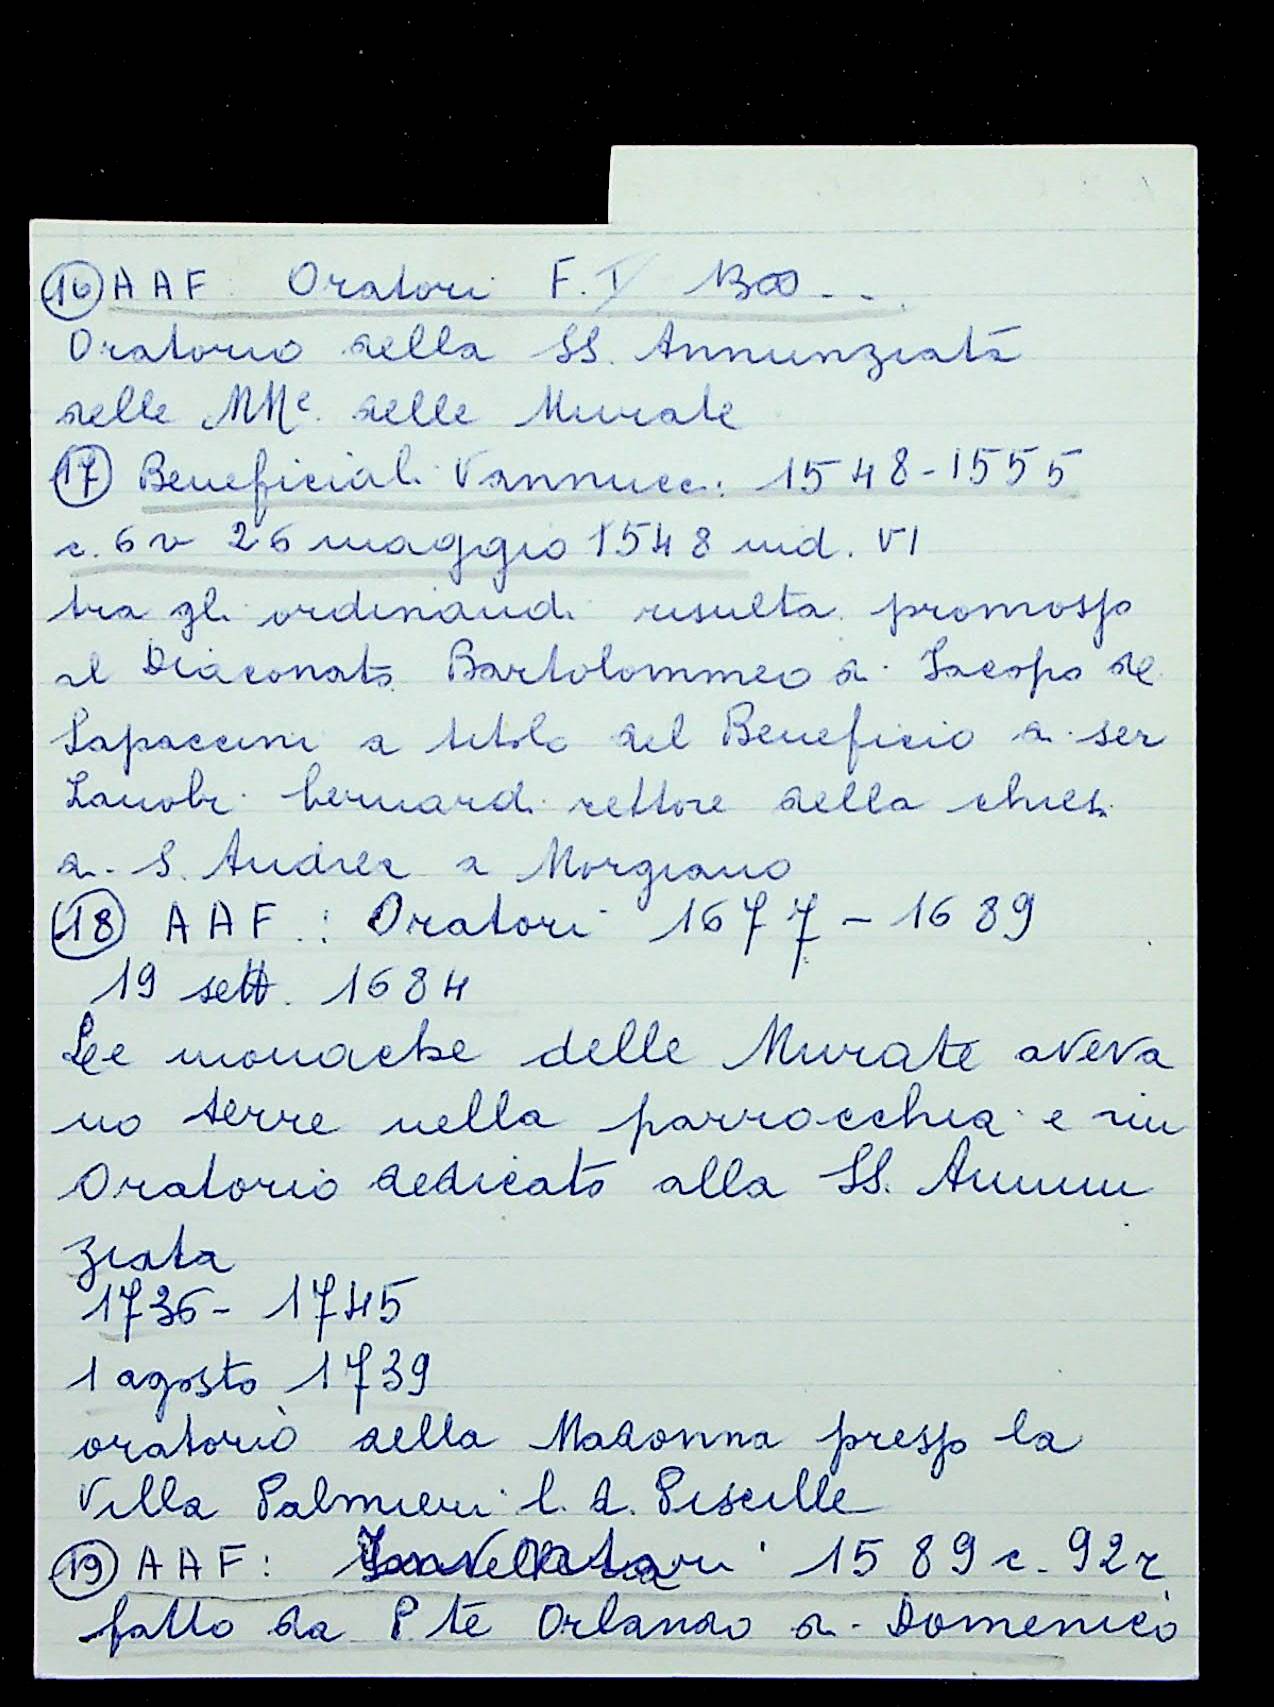 16 AAF: Oratori F. I 1300...
Oratorio della SS. Annunziata
delle MMe. delle Murate
17 Beneficiali Vannucci: 1548-1555
c. 6v 26 maggio 1548 ind. VI
tra gli ordinandi risulta promosso
al Diaconato Bartolommeo di Iacopo del
Lapaccini a titolo del Beneficio di ser
Zanobi bernardi rettore della chies.
di S. Andrea a Morgiano
18 AAF.: Oratori 1677-1689
19 sett. 1684
Le monache delle Murate aveva
no terre nella parrocchia e un
Oratorio dedicato alla SS. Annun
ziata
1736- 1745
1 agosto 1739
oratorio della Madonna presso la
Villa Palmieri l. d. Piscille
19 AAF: Inventari 1589 c. 92r
fatto da P. te Orlando di Domenico